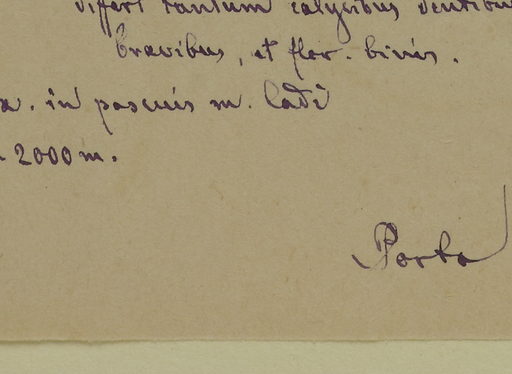 differt tantum calycibus dentibu
brevibus, et flor. binis.
a. in pascuis m. Cadì
2000 m.
Porta